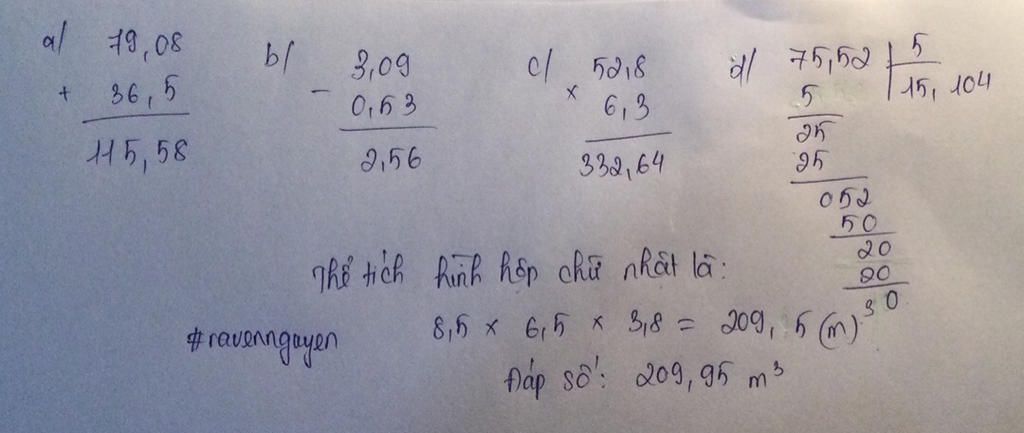 a/ 79,08
+ 36,5
115,58
b/ 3,09
- 0,53
2,56
c/ 52,8
× 6,3
332,64
d/ 75,52 5
5 15,104
25
25
052
50
20
20
0
Thể tích hình hộp chữ nhật là:
8,5 × 6,5 × 3,8 = 209,5 (m)³
#ravennguyen
Đáp số: 209,95 m³